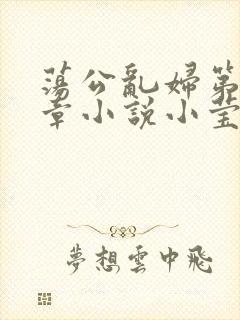 蕩公亂婦第
章小說小莹
夢想雲中飛